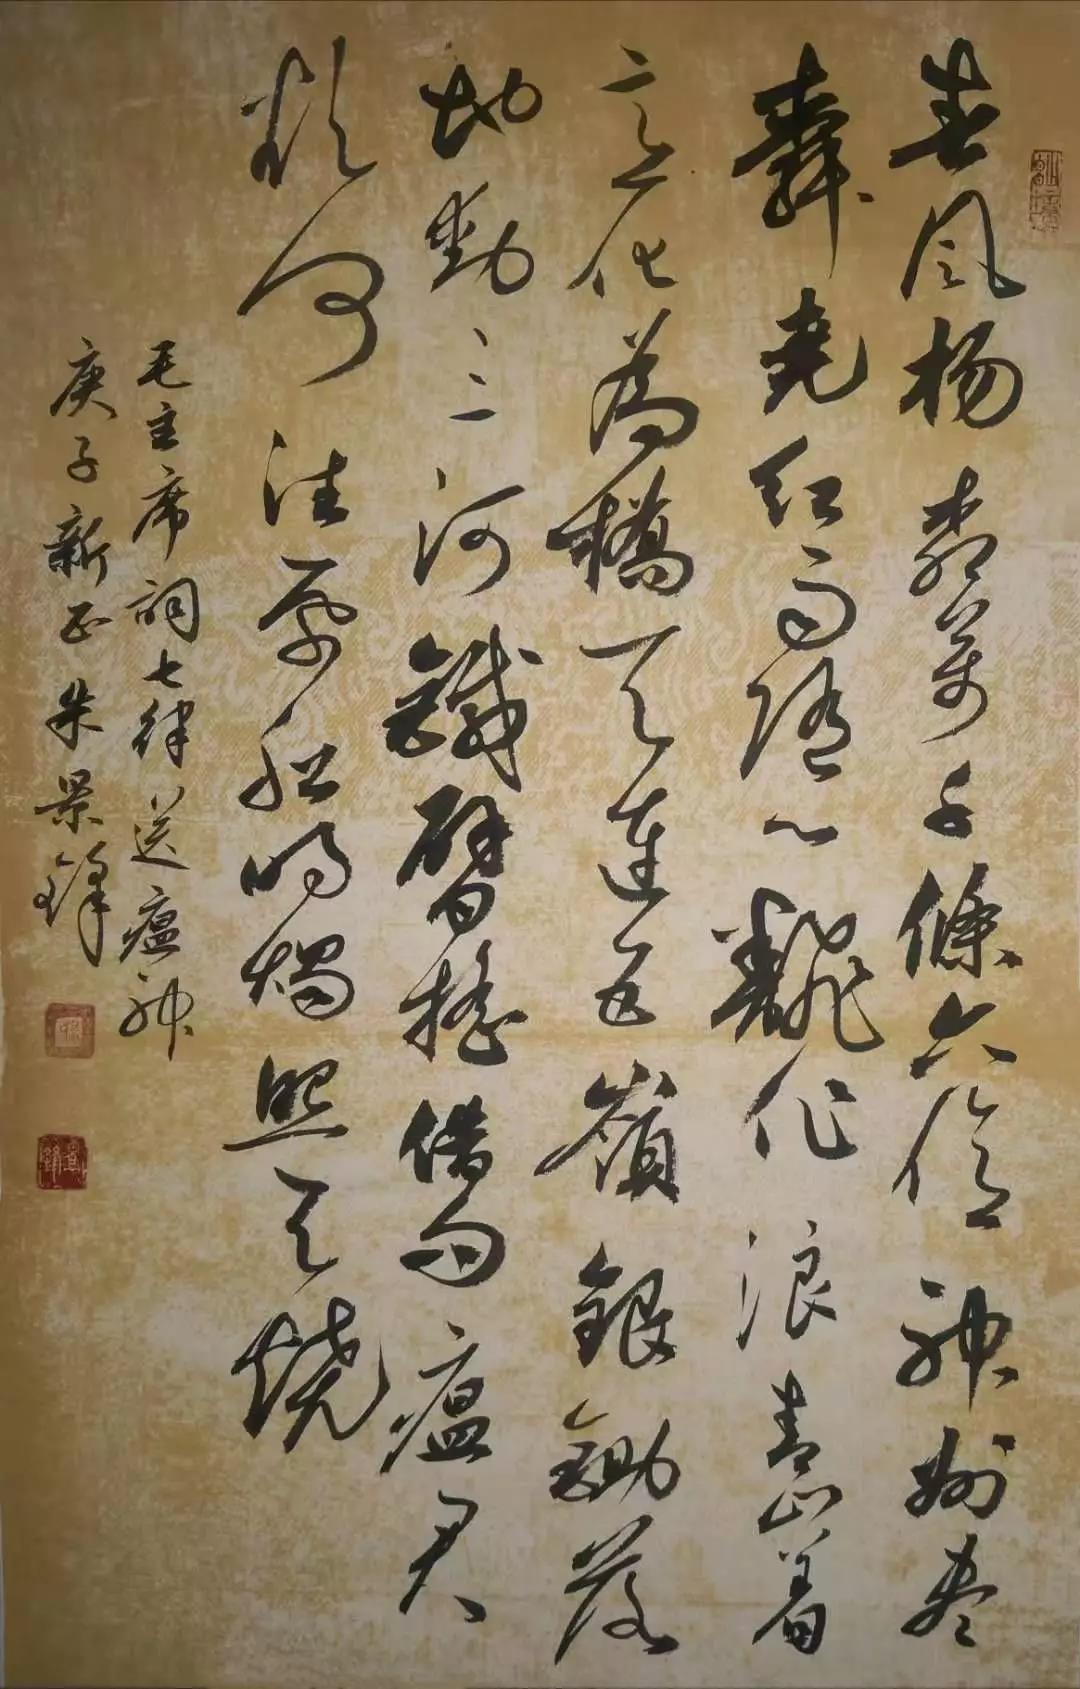 春风杨柳万千條六億神州尽
舜尧红雨随心翻作浪青山着
意化為橋天連五嶺銀鋤落
地動三河鐵臂搖借问瘟君
欲何往纸船明烛照天燒
毛主席詞七律送瘟神
庚子新正朱景鋒